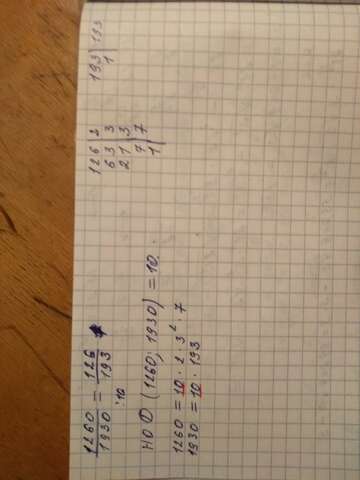 1260/1930 = 126/193
:10
НОД (1260; 1930) = 10.
1260 = 10 · 2 · 3² · 7
1930 = 10 · 193
126 | 2
63 | 3
21 | 3
7 | 7
1
193 | 193
1